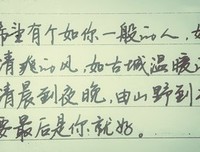 希望有个如你一般的人,如
清爽的风,如古城温暖
清晨到夜晚,由山野到
要最后是你就好。